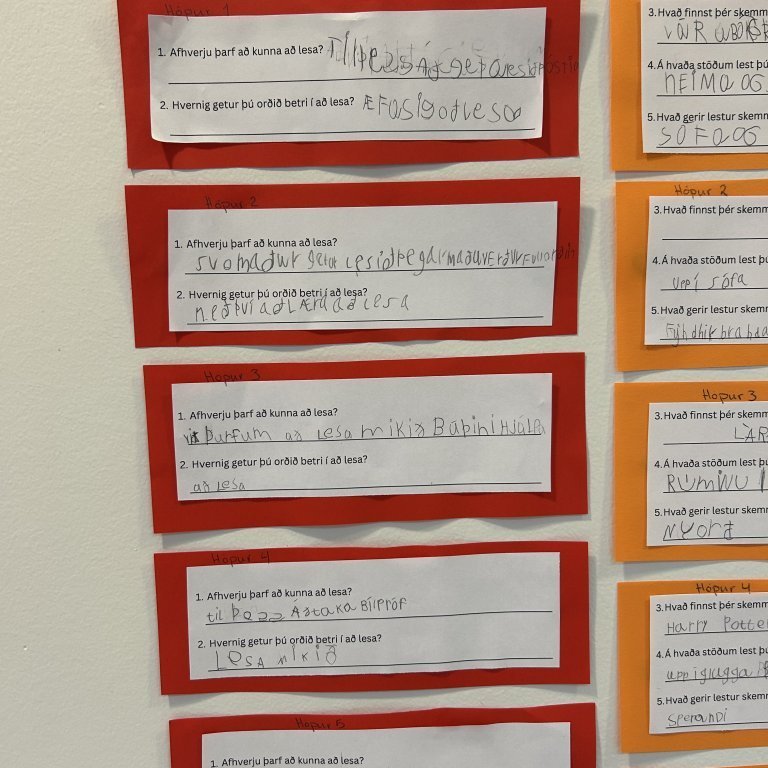 Hópur 1
1. Afhverju þarf að kunna að lesa? Tilþess
2. Hvernig getur þú orðið betri í að lesa? ÆFasigaðlesa
Hópur 2
1. Afhverju þarf að kunna að lesa?
svomaður getur lesiðþegarmaðuverður
2. Hvernig getur þú orðið betri í að lesa?
með því að Læra að lesa
Hópur 3
1. Afhverju þarf að kunna að lesa?
við þurfum að Lesa mikið HJálpa
2. Hvernig getur þú orðið betri í að lesa?
að Lesa
Hópur 4
1. Afhverju þarf að kunna að lesa?
til þess ÁðtaKa Bílpróf
2. Hvernig getur þú orðið betri í að lesa?
LesA mikið
Hópur 5
1. Afhverju þarf að kunna að lesa?
3. Hvað finnst þér skemm
4. Á hvaða stöðum lest þú
HEIMA OG
5. Hvað gerir lestur skemm
SOFA OG
Hópur 2
3. Hvað finnst þér skemm
4. Á hvaða stöðum lest þú
uppí sófa
5. Hvað gerir lestur skemm
Hópur 3
3. Hvað finnst þér skemm
LÁR
4. Á hvaða stöðum lest þú
RÚMINU
5. Hvað gerir lestur skemm
NYorð
Hópur 4
3. Hvað finnst þér skemm
Harry Potter
4. Á hvaða stöðum lest þú
5. Hvað gerir lestur skemm
sperandi